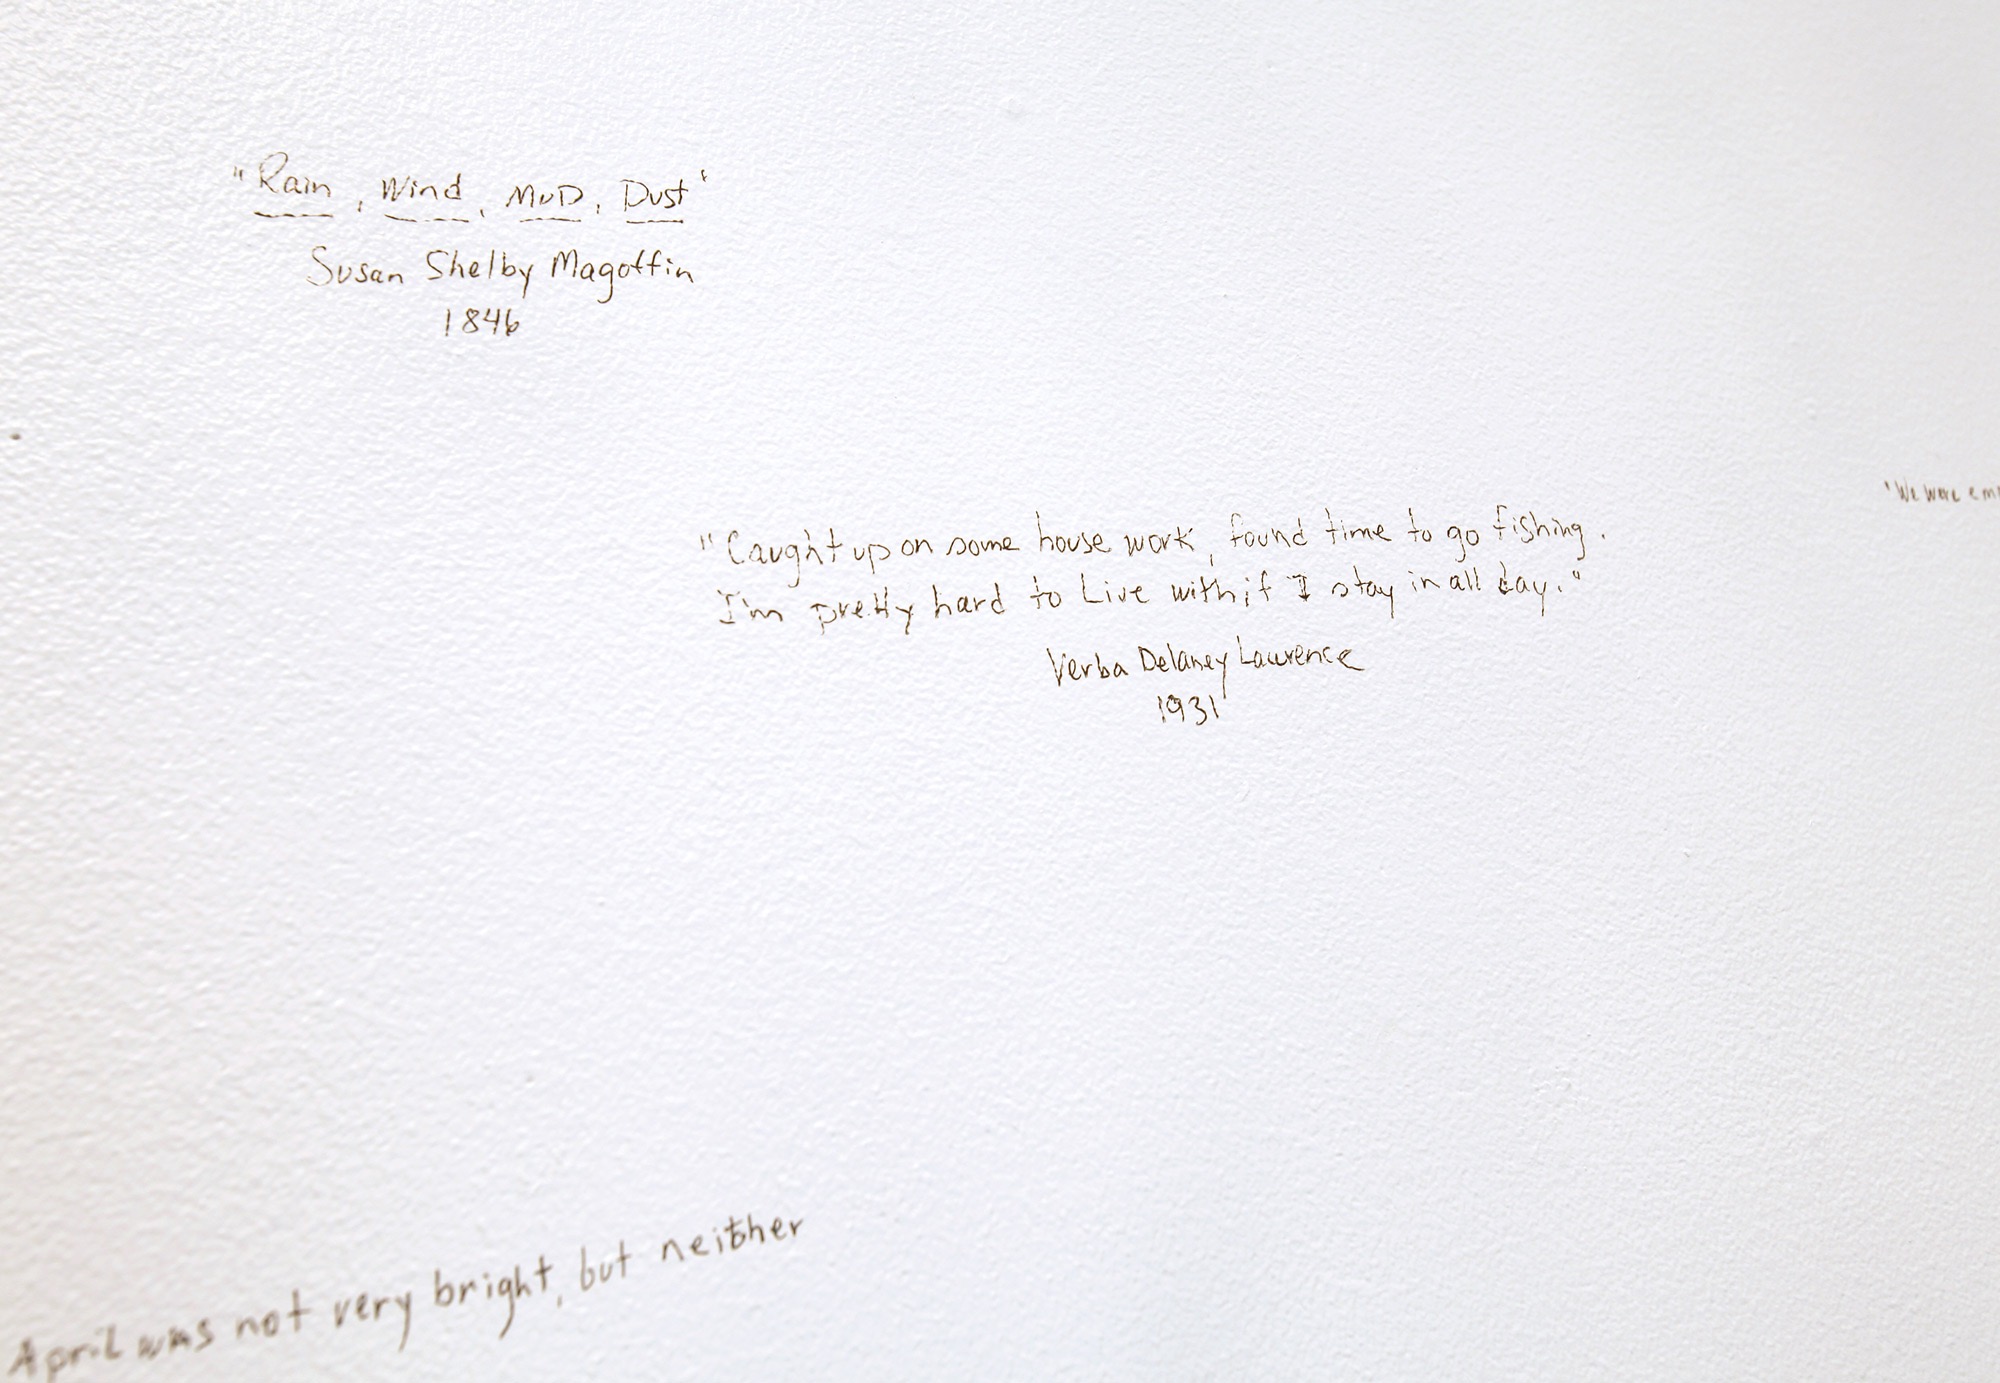 "Rain, Wind, MuD, Dust"
Susan Shelby Magoffin
1846
"We were
"Caught up on some house work, found time to go fishing.
I'm pretty hard to Live with if I stay in all day."
Verba Delaney Lawrence
1931
April was not very bright, but neither